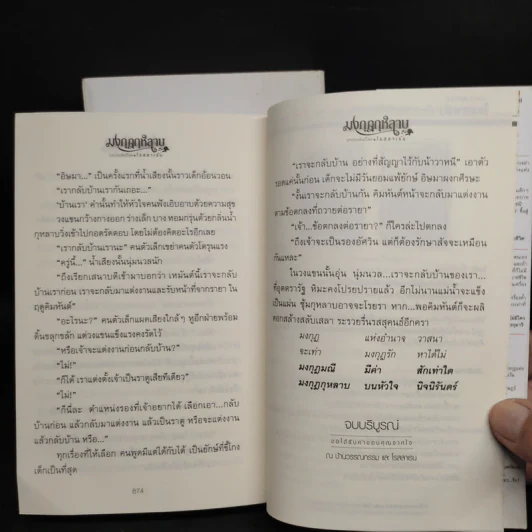 มงกุฎกุหลาบ
"อิษมา..." เป็นครั้งแรกที่น้ำเสียงนั้นราวเด็กอ้อนวอน
"เรากลับบ้านเรากันเถอะ..."
"บ้านเรา" คำนั้นทำให้หัวใจคนฟังเอิบอาบด้วยความสุข
วงแขนกว้างกางออก ร่างเล็ก บาง หอมกรุ่นด้วยกลิ่นน้ำ
กุหลาบวิ่งเข้าไปกอดรัดตอบ โดยไม่ต้องคิดอะไรอีกเลย
"เรากลับบ้านเรานะ" คนตัวเล็กเขย่าคนตัวโตรุนแรง
"ครู่นี้..." น้ำเสียงนั้นนุ่มนวลนัก
"ถึงเรียกเสนาบดีเข้ามาบอกว่า เหมันต์นี้เราจะกลับ
บ้านเราก่อน เราจะกลับมาแต่งงาน และรับหน้าที่จากรายา ใน
ฤดูคิมหันต์"
"อะไรนะ?" คนตัวเล็กแผดเสียงใกล้ๆ หูอีกฝ่ายพร้อม
ดิ้นขลุกขลัก แต่วงแขนแข็งแรงคงรัดไว้
"หรือเจ้าจะแต่งงานก่อนกลับบ้าน?"
"ไม่!"
"ก็ได้ เราแต่งตั้งเจ้าเป็นราตูเสียทีเดียว"
"ไม่!"
"ก็นี่ละ ตำแหน่งรองที่เจ้าอยากได้ เลือกเอา...กลับ
บ้านก่อน แล้วกลับมาแต่งงาน แล้วเป็นราตู หรือจะแต่งงาน
แล้วกลับบ้าน หรือ..."
ทุกเรื่องที่ให้เลือก คนพูดมีแต่ได้กับได้ เป็นยักษ์ที่ขี้โกง
เด็กเป็นที่สุด
874
มงกุฎกุหลาบ
"เราจะกลับบ้าน อย่างที่สัญญาไว้กับน้าวาหนี" เอาตัว
รอดแค่นั้นก่อน เด็กจะไม่มีวันยอมแพ้ยักษ์ อิษมาผงกศีรษะ
"งั้นเราจะกลับบ้านกัน คิมหันต์หน้าจะกลับมาแต่งงาน
ตามข้อตกลงที่ถวายต่อรายา"
"เจ้า...ข้อตกลงต่อรายา?" ก็ใครล่ะไปตกลง
"ถึงเจ้าจะเป็นรองอัศวิน แต่ก็ต้องรักษาสัจจะเหมือน
กันแหละ"
ในวงแขนนั้นอุ่น นุ่มนวล...เราจะกลับบ้านของเรา...
ที่อุดตรารัฐ หิมะคงโปรยปรายแล้ว อีกไม่นานแม่น้ำจะแข็ง
เป็นแผ่น ซุ้มกุหลาบอาจจะโรยรา หาก...พอคิมหันต์ก็จะผลิ
ดอกสล้างสลับเสลา ระรวยรื่นรสสุคนธ์อีกครา
มงกุฎ แห่งอำนาจ วาสนา
จะเท่า มงกุฎรัก หาได้ไม่
มงกุฎมณี มีค่า สักเท่าใด
มงกุฎกุหลาบ บนหัวใจ นิจนิรันดร์
จบบริบูรณ์
ขอได้รับคำขอบคุณจากใจ
ณ บ้านวรรณกรรม และ โรสลาเรน